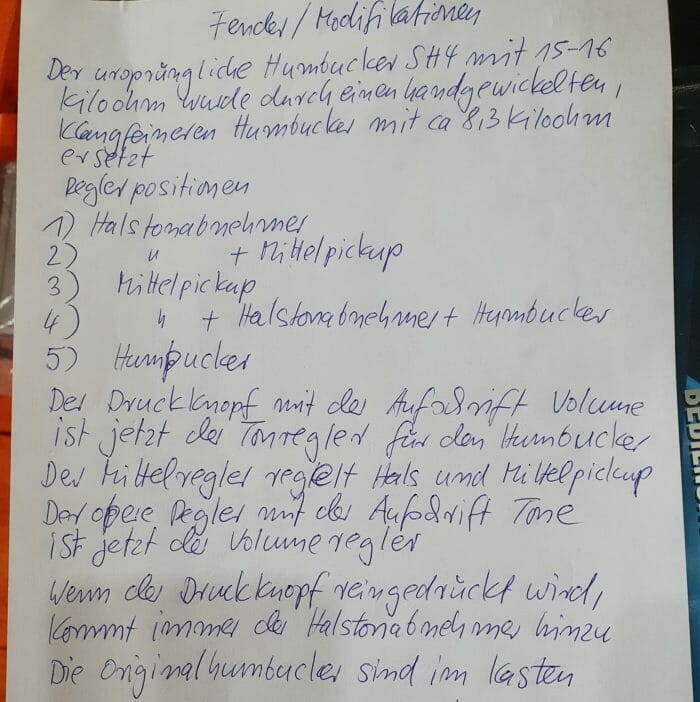 Fender/Modifikationen
Der ursprüngliche Humbucker SH4 mit 15-16
Kiloohm wurde durch einen handgewickelten,
Klangfeineren Humbucker mit ca 8,3 Kiloohm
ersetzt
Reglerpositionen
1) Halstonabnehmer
2) " + Mittelpickup
3) Mittelpickup
4) " + Halstonabnehmer + Humbucker
5) Humbucker
Der Druckknopf mit der Aufschrift Volume
ist jetzt der Tonregler für den Humbucker
Der Mittelregler regelt Hals und Mittelpickup
Der obere Regler mit der Aufschrift Tone
ist jetzt der Volumeregler
Wenn der Druckknopf reingedrückt wird,
kommt immer der Halstonabnehmer hinzu
Die Originalhumbucker sind im Kasten